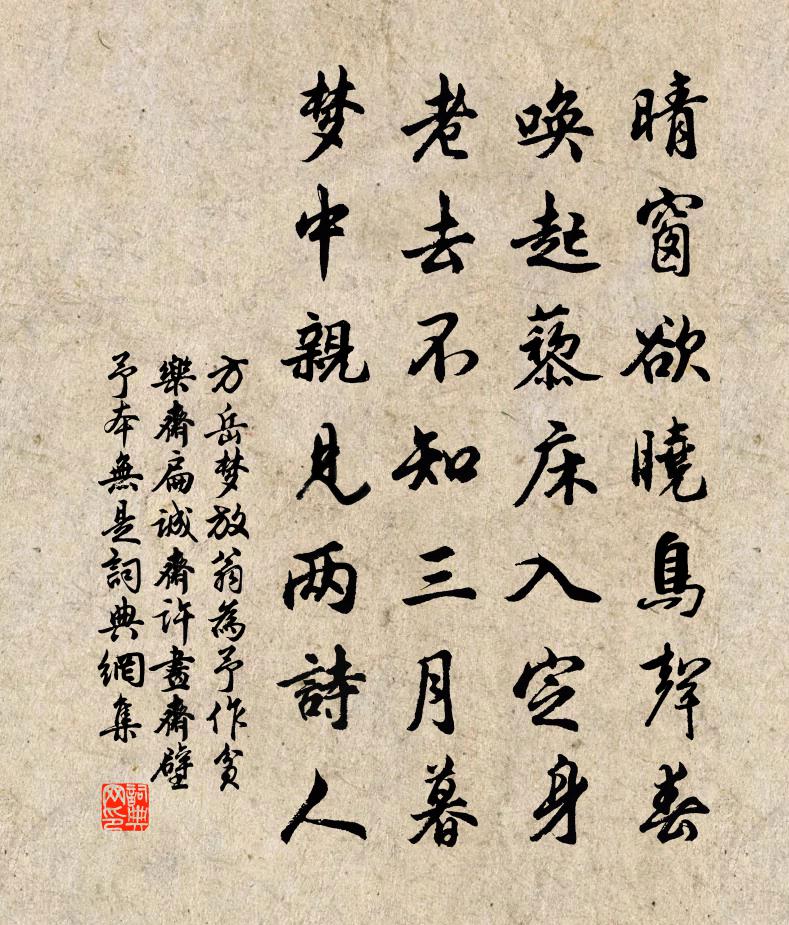 晴窗欲曉鳥聲春
唤起藜床入定身
老去不知三月暮
梦中親見两詩人
方岳梦放翁為予作貧
樂齋扁誠齋許畫齋壁
予本無是詞典網集
詞典网印